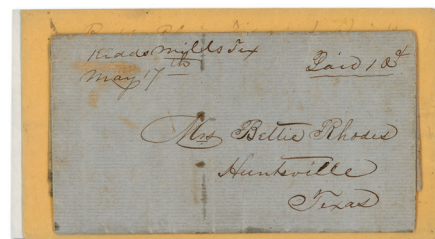 Kidds Mills Tex
May 17th
Paid 10
Mrs Bettie Rhodes
Huntsville
Texas